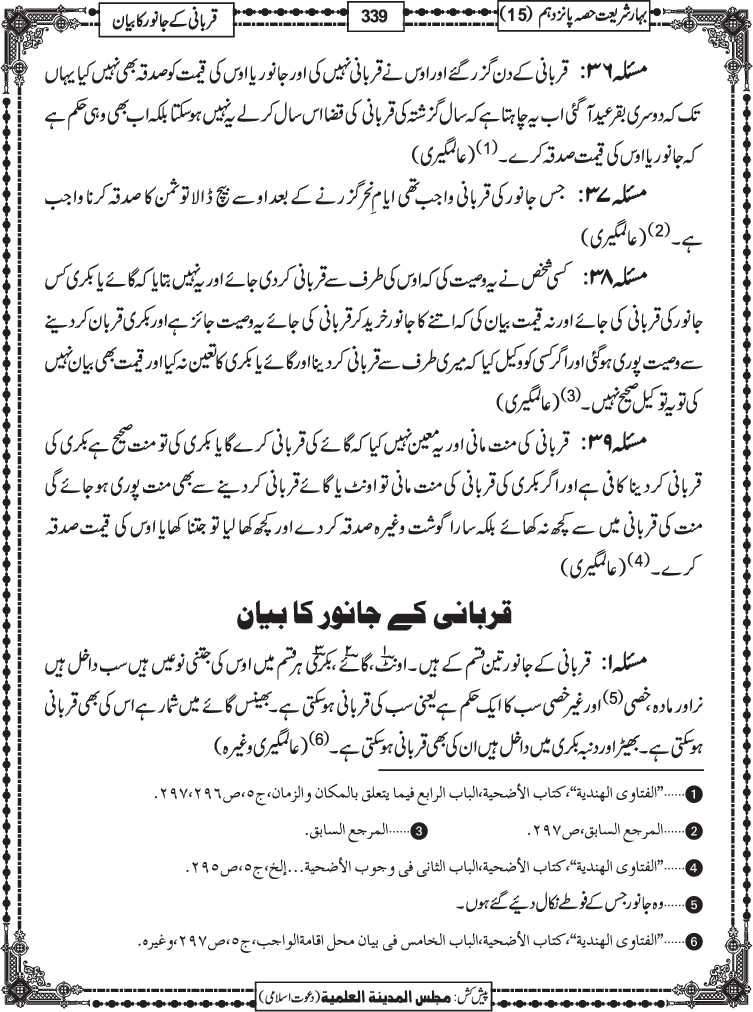 بہار شریعت حصہ پانزدہم (15)
339
قربانی کے جانور کا بیان
مسئلہ ۳۶: قربانی کے دن گزر گئے اور اوس نے قربانی نہیں کی اور جانور یا اوس کی قیمت کو صدقہ بھی نہیں کیا یہاں
تک کہ دوسری بقرعید آگئی اب یہ چاہتا ہے کہ سال گزشتہ کی قربانی کی قضا اس سال کرلے یہ نہیں ہوسکتا بلکہ اب بھی وہی حکم ہے
کہ جانور یا اوس کی قیمت صدقہ کرے۔(1) (عالمگیری)
مسئلہ ۳۷: جس جانور کی قربانی واجب تھی ایام نحر گزرنے کے بعد اوسے بیچ ڈالا تو ثمن کا صدقہ کرنا واجب
ہے۔(2) (عالمگیری)
مسئلہ ۳۸: کسی شخص نے یہ وصیت کی کہ اوس کی طرف سے قربانی کردی جائے اور یہ نہیں بتایا کہ گائے یا بکری کس
جانور کی قربانی کی جائے اور نہ قیمت بیان کی کہ اتنے کا جانور خرید کر قربانی کی جائے یہ وصیت جائز ہے اور بکری قربان کردینے
سے وصیت پوری ہوگئی اور اگر کسی کو وکیل کیا کہ میری طرف سے قربانی کردینا اور گائے یا بکری کا تعین نہ کیا اور قیمت بھی بیان نہیں
کی تو یہ توکیل صحیح نہیں۔(3) (عالمگیری)
مسئلہ ۳۹: قربانی کی منت مانی اور یہ معین نہیں کیا کہ گائے کی قربانی کرے گا یا بکری کی تو منت صحیح ہے بکری کی
قربانی کردینا کافی ہے اور اگر بکری کی قربانی کی منت مانی تو اونٹ یا گائے قربانی کردینے سے بھی منت پوری ہوجائے گی
منت کی قربانی میں سے کچھ نہ کھائے بلکہ سارا گوشت وغیرہ صدقہ کردے اور کچھ کھالیا تو جتنا کھایا اوس کی قیمت صدقہ
کرے۔(4) (عالمگیری)
قربانی کے جانور کا بیان
مسئلہ ۱: قربانی کے جانور تین قسم کے ہیں۔ اونٹ۱، گائے۲، بکری۳ ہر قسم میں اوس کی جتنی نوعیں ہیں سب داخل ہیں
نر اور مادہ، خصی(5) اور غیر خصی سب کا ایک حکم ہے یعنی سب کی قربانی ہوسکتی ہے۔ بھینس گائے میں شمار ہے اس کی بھی قربانی
ہوسکتی ہے۔ بھیڑ اور دنبہ بکری میں داخل ہیں ان کی بھی قربانی ہوسکتی ہے۔(6) (عالمگیری وغیرہ)
1......"الفتاوی الهندیة"، کتاب الأضحیة، الباب الرابع فیما یتعلق بالمکان والزمان، ج٥، ص٢٩٦،٢٩٧.
2......المرجع السابق، ص٢٩٧. 3......المرجع السابق.
4......"الفتاوی الهندیة"، کتاب الأضحیة، الباب الثانی فی وجوب الأضحیة...إلخ، ج٥، ص٢٩٥.
5......وہ جانور جس کے فوطے نکال دیئے گئے ہوں۔
6......"الفتاوی الهندیة"، کتاب الأضحیة، الباب الخامس فی بیان محل اقامة الواجب، ج٥، ص٢٩٧، وغیره.
پیش کش: مجلس المدینة العلمیة (دعوت اسلامی)